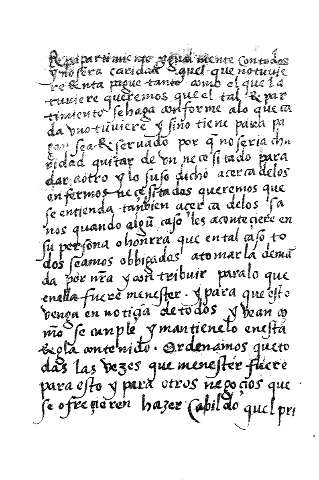 Repartimiento ygual mente con todos
y no sera caridad quel que no tuvie
re Renta pague tanto como el que la
tuviere queremos que el tal Repar
timiento se haga conforme a lo que ca
da vno tuviere y si no tiene para pa
gar sea Reservado por q no seria cha
ridad quitar de vn necesitado para
dar a otro y lo suso dicho acerca delos
enfermos necesitados queremos que
se entienda tanbien acerca delos sa
nos quando algun caso les aconteciere en
su persona o honrra que en tal caso to
dos seamos obligados a tomar la deman
da por nra y contribuir para lo que
enella fuere menester. y para que esto
venga en noticia de todos y vean co
mo se cunple y mantienelo enesta
Regla contenido. Ordenamos que to
das las vezes que menester fuere
para esto y para otros negocios que
se ofrezieren hazer Cabildo quel pri